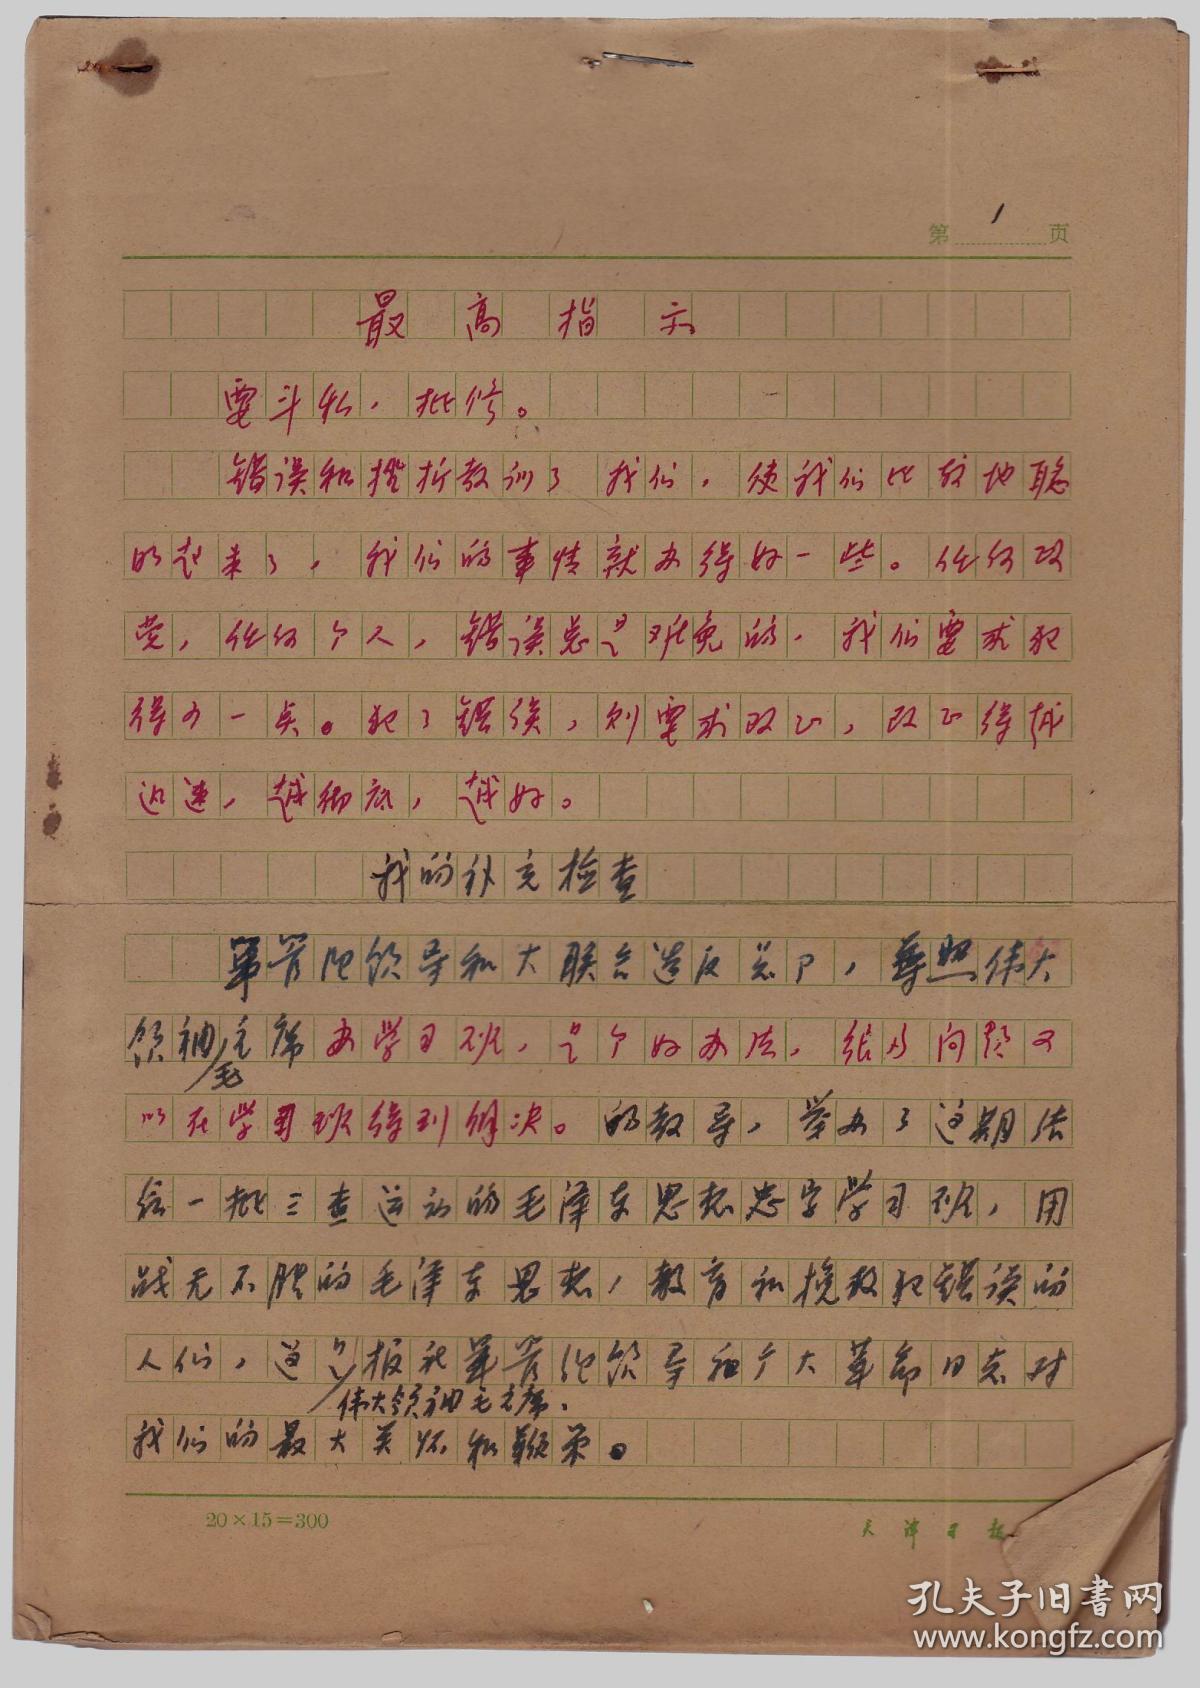 第1页
最高指示
要斗私，批修。
错误和挫折教训了我们，使我们比较地聪
明起来了，我们的事情就办得好一些。任何政
党，任何个人，错误总是难免的，我们要求犯
得少一点。犯了错误，则要求改正，改正得越
迅速，越彻底，越好。
我的补充检查
军管组领导和大联合造反总部，遵照伟大
领袖毛主席办学习班，是个好办法，很多问题可
以在学习班得到解决。的教导，举办了这期法
会一批三查运动的毛泽东思想忠字学习班，用
战无不胜的毛泽东思想，教育和挽救犯错误的
人们，这是伟大领袖毛主席、报社军管组领导和广大革命同志对
我们的最大关怀和鞭策。
20×15=300
天津日报
孔夫子旧书网
www.kongfz.com